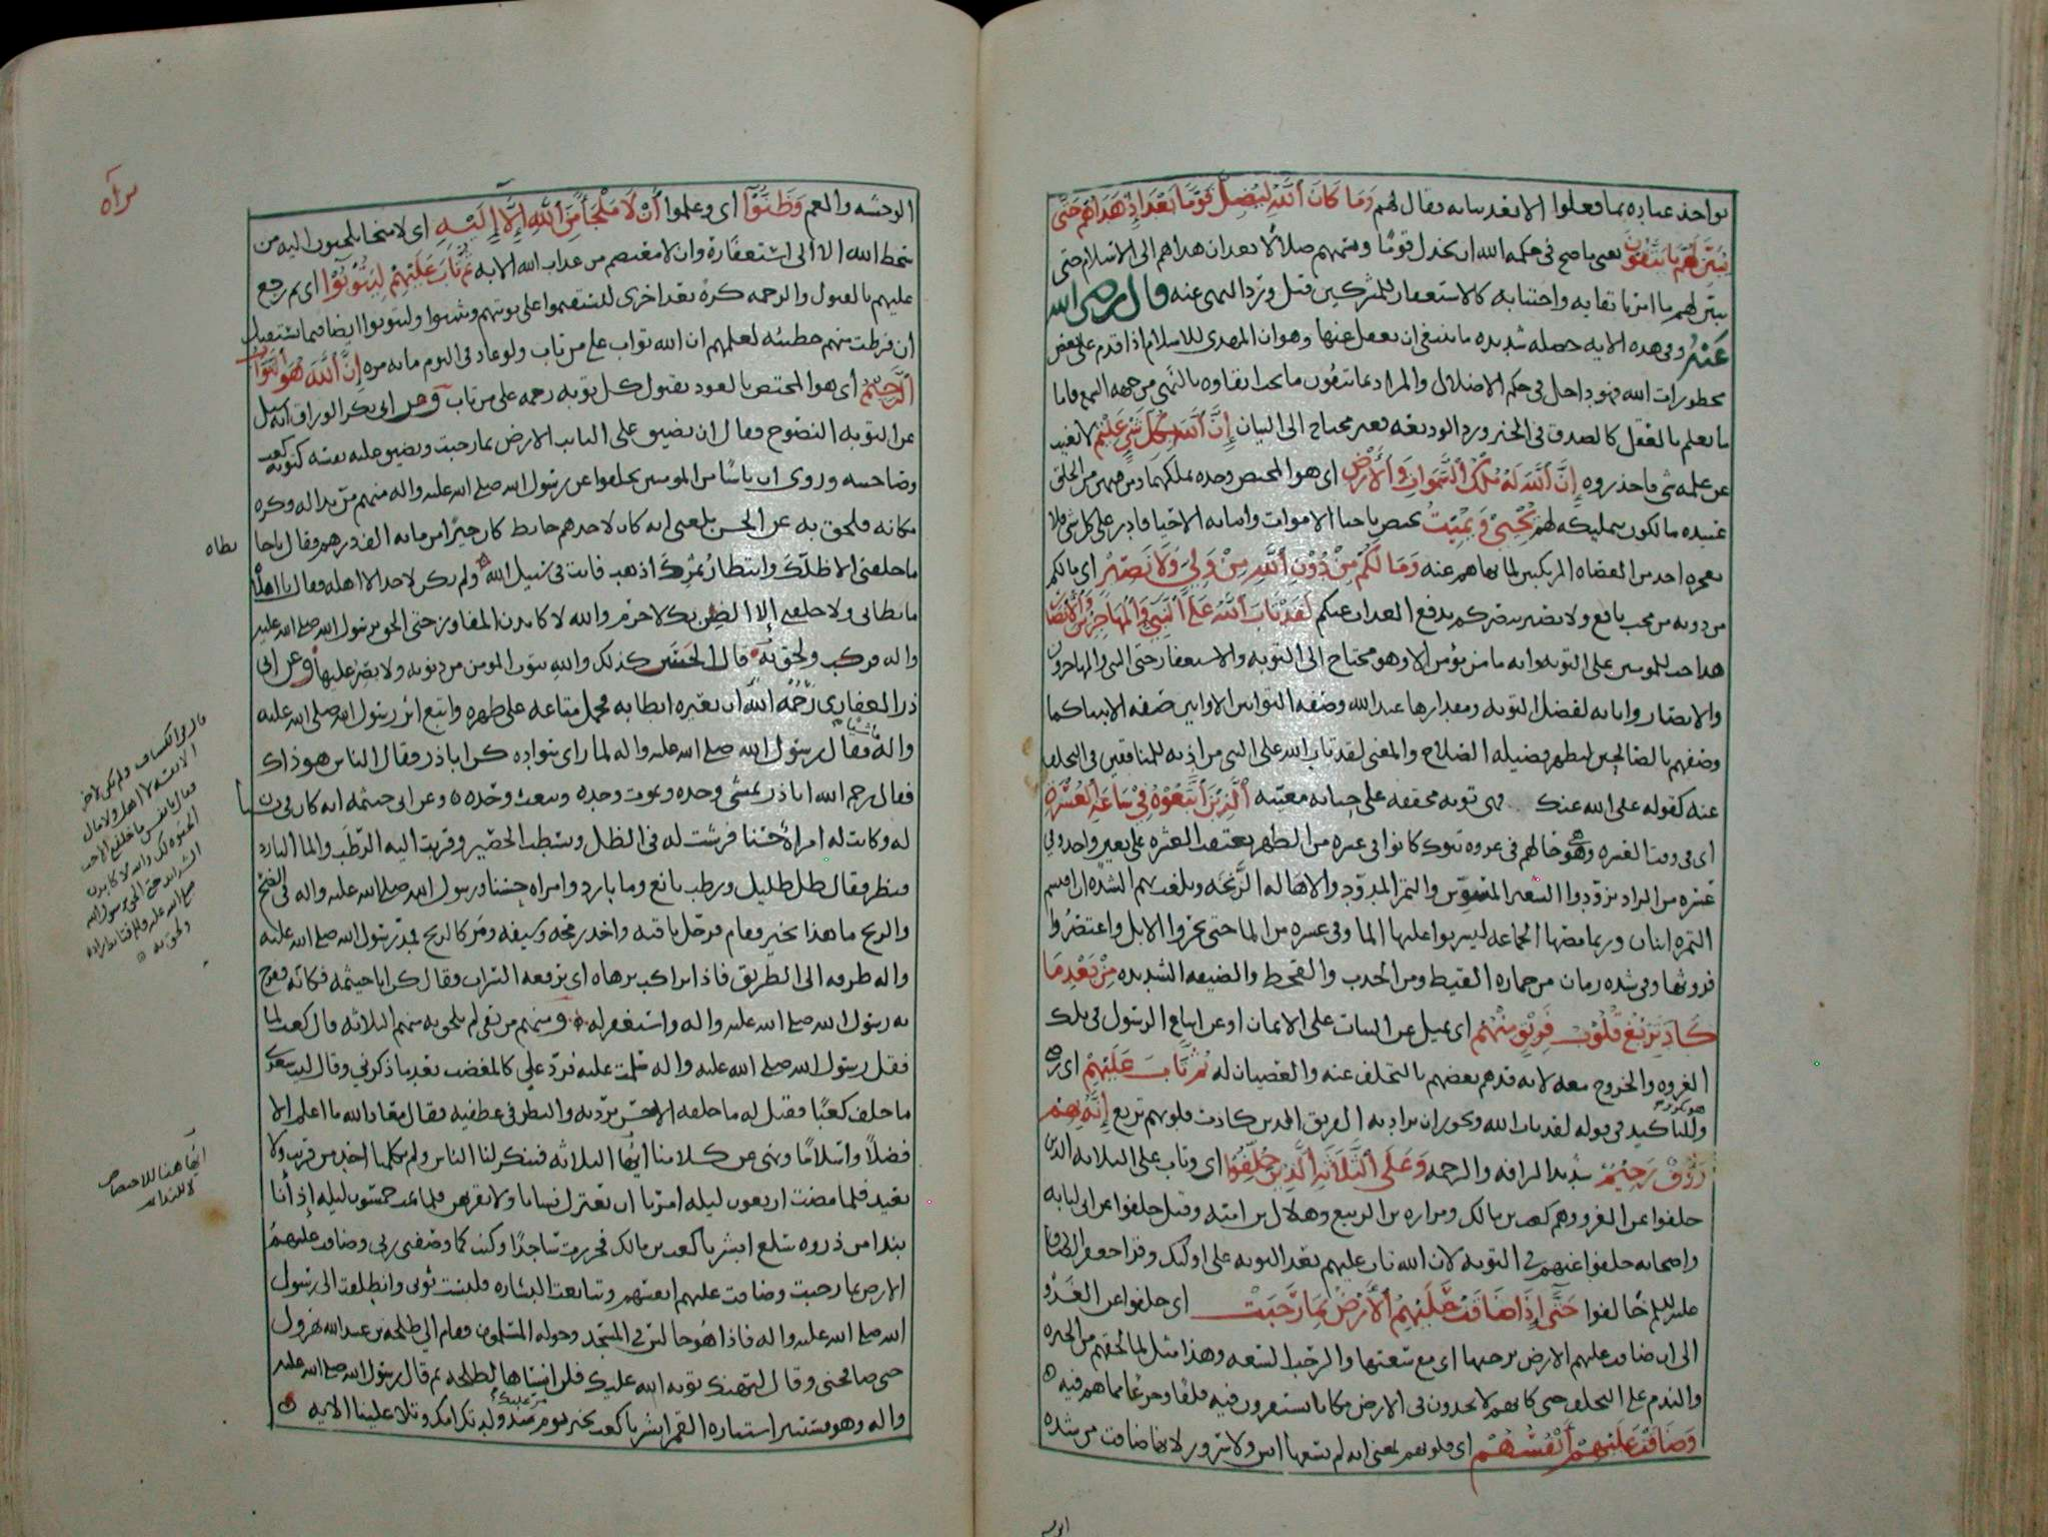 يواخذ عباده بما فعلوا الا بعد بيانه فقال لهم وَمَا كَانَ اللَّهُ لِيُضِلَّ قَوْمًا بَعْدَ إِذْ هَدَاهُمْ حَتَّى
يُبَيِّنَ لَهُمْ مَا يَتَّقُونَ يعني ما صح في حكمه الله ان يخذل قومًا ويسميهم ضلالا بعد ان هداهم الى الاسلام حتى
يبين لهم ما امر باتقايه واجتنابه كالاستعفار للمشركين قبل ورد النهي عنه قال رضي الله
عنه وفي هذه الايه شديده ما ينبغي ان يغفل عنها وهو ان المهدي للاسلام اذا اقدم على بعض
محظورات الله فهو داخل في حكم الاضلال والمراد بما يتقون ما يجب اتقاوه بالنهي من جهه السمع فاما
ما يعلم بالعقل كالصدق في الخبر ورد الوديعه فغير محتاج الى البيان إِنَّ اللَّهَ بِكُلِّ شَيْءٍ عَلِيمٌ لا يغيب
عن علمه شي فاحذروه إِنَّ اللَّهَ لَهُ مُلْكُ السَّمَوَاتِ وَالْأَرْضِ اي هو المختص وحده بملكهما ومن فيهن من الخلق
عبيده مالكون بتمليكه لهم يُحْيِي وَيُمِيتُ يختص باحيا الاموات واماته الاحيا قادر على كل شي فلا
يعجزه احد من العصاه المرتكبين لما نهاهم عنه وَمَا لَكُمْ مِنْ دُونِ اللَّهِ مِنْ وَلِيٍّ وَلَا نَصِيرٍ اي مالكم
من دونه من محب نافع ولا نصير ينصركم بدفع العذاب عنكم لَقَدْ تَابَ اللَّهُ عَلَى النَّبِيِّ وَالْمُهَاجِرِينَ وَالْأَنْصَارِ
هذا حث للمومنين على التوبه وانه ما من مؤمن الا وهو محتاج الى التوبه والاستعفار حتى النبي والمهاجرون
والانصار وابانه لفضل التوبه ومقدارها عند الله وصفه التوابين الاوابين صفه الانبيا كما
وصفهم بالصالحين ليظهر فضيله الصلاح والمعنى لقد تاب الله على النبي من اذنه للمنافقين في التخلف
عنه كقوله عفى الله عنك فهي توبه محققه على معنيه الَّذِينَ اتَّبَعُوهُ فِي سَاعَةِ الْعُسْرَةِ
اي في وقت العسره وهو حالهم في غزوه تبوك كانوا في عسره من الظهر يعتقب العشره على بعير واحد وفي
عسره من الزاد تزودوا الشعير المسوس والتمر المدود والاهاله الزنخه وبلغت بهم الشده ان اقتسم
التمره اثنان وربما مصها الجماعه ليشربوا عليها الما وفي عسره من الما حتى نحروا الابل واعتصروا
فروثها وفي شده زمان من حماره القيظ ومن الجدب والقحط والضيقه الشديده مِنْ بَعْدِ مَا
كَادَ يَزِيغُ قُلُوبُ فَرِيقٍ مِنْهُمْ اي يميل عن الثبات على الايمان او عن اتباع الرسول في تلك
الغزوه والخروج معه لانه قد هم بعضهم بالتخلف عنه والعصيان له ثُمَّ تَابَ عَلَيْهِمْ اي
وللتاكيد في قوله لقد تاب الله ويجوز ان يراد به الفريق الذين كادت قلوبهم تزيغ إِنَّهُ بِهِمْ
رَؤُفٌ رَحِيمٌ شديد الرافه والرحمه وَعَلَى الثَّلَاثَةِ الَّذِينَ خُلِّفُوا اي وتاب على الثلاثه الذين
خلفوا عن الغزو وهم كعب بن مالك ومراره بن الربيع وهلال بن اميه وقيل خلفوا عن ابي لبابه
واصحابه خلفوا عنهم في التوبه لان الله تاب عليهم بعد التوبه على اوليك وقرا جعفر الصادق
عليه السلم خالفوا حَتَّى إِذَا ضَاقَتْ عَلَيْهِمُ الْأَرْضُ بِمَا رَحُبَتْ اي خلفوا عن الغزو
الى ان ضاقت عليهم الارض برحبها اي مع سعتها والرحب السعه وهذا مثل لما لحقهم من الحيره
والندم على التخلف حتى كانهم لا يجدون في الارض مكانا يستقرون فيه قلقا وجزعا مما هم فيه
وَضَاقَتْ عَلَيْهِمْ أَنْفُسُهُمْ اي قلوبهم بمعنى انه لم يسعها انس ولا سرور لانها ضاقت من شده
براه
الوحشه والغم وَظَنُّوا اي وعلموا أَنْ لَا مَلْجَأَ مِنَ اللَّهِ إِلَّا إِلَيْهِ اي لا منجا يلجون اليه من
سخط الله الا الى استعفاره وان لا معتصم من عذاب الله الا به ثُمَّ تَابَ عَلَيْهِمْ لِيَتُوبُوا اي ثم رجع
عليهم بالقبول والرحمه كره بعد اخرى ليستقيموا على توبتهم ويثبتوا وليتوبوا ايضا فيما يستقبل
ان فرطت منهم خطيئه لعلمهم ان الله تواب على من تاب ولو عاد في اليوم مايه مره إِنَّ اللَّهَ هُوَ التَّوَّابُ
الرَّحِيمُ اي هو المختص بالعود بقبول كل توبه رحمه على من تاب وعن ابي بكر الوراق انه سيل
عن التوبه النصوح فقال ان تضيق على التايب الارض بما رحبت وتضيق عليه نفسه كتوبه كعب
وصاحبيه وروى ان ناسًا من المومنين تخلفوا عن رسول الله صلى الله عليه واله منهم من بدا له وكره
مكانه فلحق به عن الحسن بلغني انه كان لاحدهم حايط كان خيرًا من مايه الف درهم فقال يا حايطاه
ما خلفني الا ظلك وانتظار ثمرك اذهب فانت في سبيل الله ولم يكن لاخر الا اهله فقال يا اهلاه
ما بطاني ولا خلفني إلا الضن بك لا جرم والله لاكابدن المفاوز حتى الحق برسول الله صلى الله عليه
واله فركب ولحق به قال الحسن كذلك والله يتوب المومن من ذنوبه ولا يصر عليها وعن ابي
ذر الغفاري رحمه الله ان بعيره ابطا به فحمل متاعه على ظهره واتبع اثر رسول الله صلى الله عليه
واله ماشيا فقال رسول الله صلى الله عليه واله لما راى سواده كن ابا ذر فقال الناس هو ذاك
فقال رحم الله ابا ذر يمشي وحده ويموت وحده ويبعث وحده وعن ابي خيثمه انه كان في بستان
له وكانت له امراة حسنا فرشت له في الظل وبسطت الحصير وقربت اليه الرطب والما البارد
فنظر فقال ظل ظليل ورطب يانع وما بارد وامراه حسنا ورسول الله صلى الله عليه واله في الضح
والريح ما هذا بخير فقام فرحل ناقته واخذ رمحه وسيفه ومر كالريح فمد رسول الله صلى الله عليه
واله طرفه الى الطريق فاذا براكب يزهاه اي يرفعه السراب فقال كن ابا خيثمه فكانه ففرح
به رسول الله صلى الله عليه واله واستغفر له ومنهم من بقي لم يلحق به منهم الثلاثه قال كعب لما
قفل رسول الله صلى الله عليه واله سلمت عليه فرد علي كالمغضب بعد ما ذكرني وقال ليت شعري
ما خلف كعبًا فقيل له ما خلفه الا حسن برديه والنظر في عطفيه فقال معاذ الله ما اعلم الا
فضلاً واسلامًا ونهى عن كلامنا ايها الثلاثه فتنكر لنا الناس ولم يكلمنا احد من قريب ولا
بعيد فلما مضت اربعون ليله امرنا ان نعتزل نسانا ولا نقربهن فلما تمت خمسون ليله إذ أنا
بندا من ذروه سلع ابشر يا كعب بن مالك فخررت ساجدًا وكنت كما وصفني ربي وضاقت عليهم
الارض بما رحبت وضاقت عليهم انفسهم وتتابعت البشاره فلبست ثوبي وانطلقت الى رسول
الله صلى الله عليه واله فاذا هو جالس في المسجد وحوله المسلمون فقام الي طلحه بن عبيد الله يهرول
حتى صافحني وقال لتهنك توبه الله عليك فلن انساها لطلحه ثم قال رسول الله صلى الله عليه
واله وهو يستنير استناره القمر ابشر يا كعب بخير يوم مر عليك منذ ولدتك امك وتلا علينا الايه
قال في الكشاف ولم يكن لاخر
الا نفسه لا اهل ولا مال
فقال يا نفس ما خلفني الا حب
الحيوه لك والله لاكابدن
الشدايد حتى الحق برسول الله
صلى الله عليه وسلم فتابط زاده
ولحق به
ايها هنا للاختصاص
لا للندا